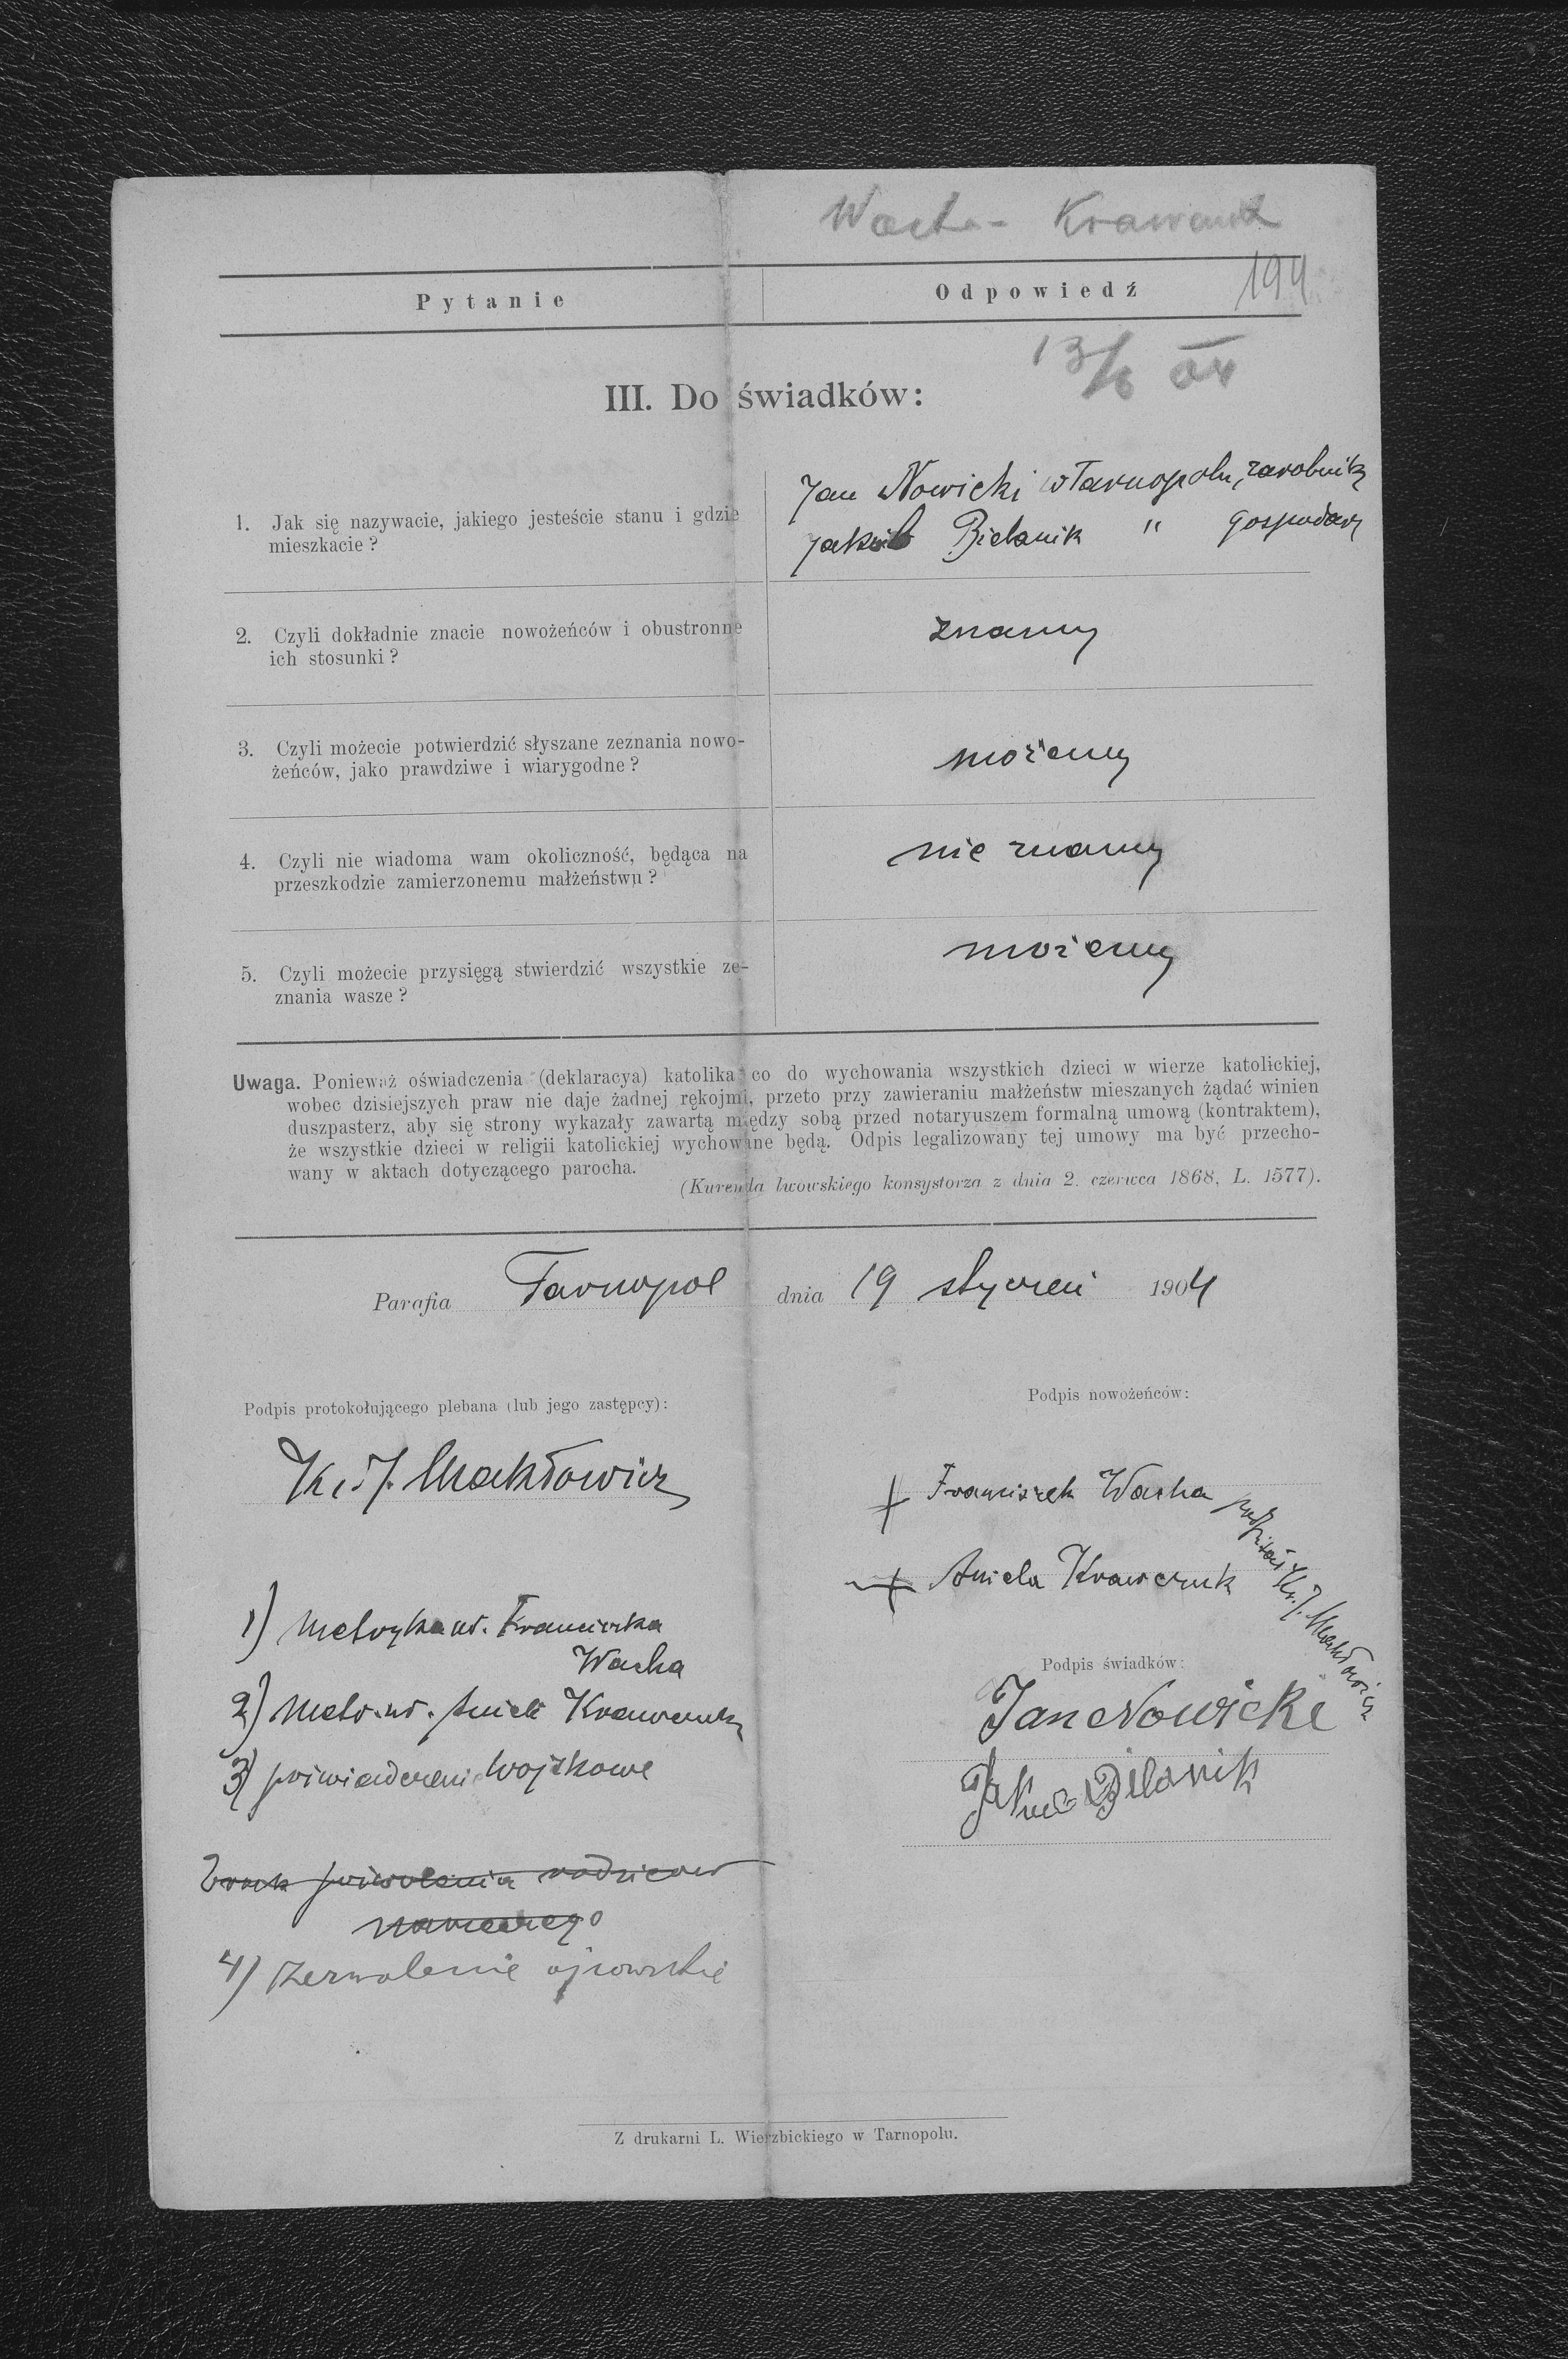 Wacha - Krawczuk
Pytanie
Odpowiedź
194
13/6 04
III. Do świadków:
1. Jak się nazywacie, jakiego jesteście stanu i gdzie
mieszkacie?
Jan Nowicki w Tarnopolu, zarobnik
Jakub Bielanik " gospodarz
2. Czyli dokładnie znacie nowożeńców i obustronne
ich stosunki?
znamy
3. Czyli możecie potwierdzić słyszane zeznania nowo-
żeńców, jako prawdziwe i wiarygodne?
możemy
4. Czyli nie wiadoma wam okoliczność, będąca na
przeszkodzie zamierzonemu małżeństwu?
nie znamy
5. Czyli możecie przysięgą stwierdzić wszystkie ze-
znania wasze?
możemy
Uwaga. Ponieważ oświadczenia (deklaracya) katolika co do wychowania wszystkich dzieci w wierze katolickiej,
wobec dzisiejszych praw nie daje żadnej rękojmi, przeto przy zawieraniu małżeństw mieszanych żądać winien
duszpasterz, aby się strony wykazały zawartą między sobą przed notaryuszem formalną umową (kontraktem),
że wszystkie dzieci w religii katolickiej wychowane będą. Odpis legalizowany tej umowy ma być przecho-
wany w aktach dotyczącego parocha.
(Kurenda lwowskiego konsystorza z dnia 2. czerwca 1868, L. 1577).
Parafia Tarnopol dnia 19 styczeń 1904
Podpis protokołującego plebana (lub jego zastępcy):
Ks. J. Makłowicz
Podpis nowożeńców:
+ Franciszek Wacha
+ Aniela Krawczuk
podpisał Ks. J. Makłowicz
1) Metryka ur. Franciszka
Wacha
2) Metr. ur. Anieli Krawczuk
3) poświadczenie wojskowe
Brak pozwolenia rodziców
narzeczonego
4) Zezwolenie ojcowskie
Podpis świadków:
Jan Nowicki
Jakub Bilanik
Z drukarni L. Wierzbickiego w Tarnopolu.